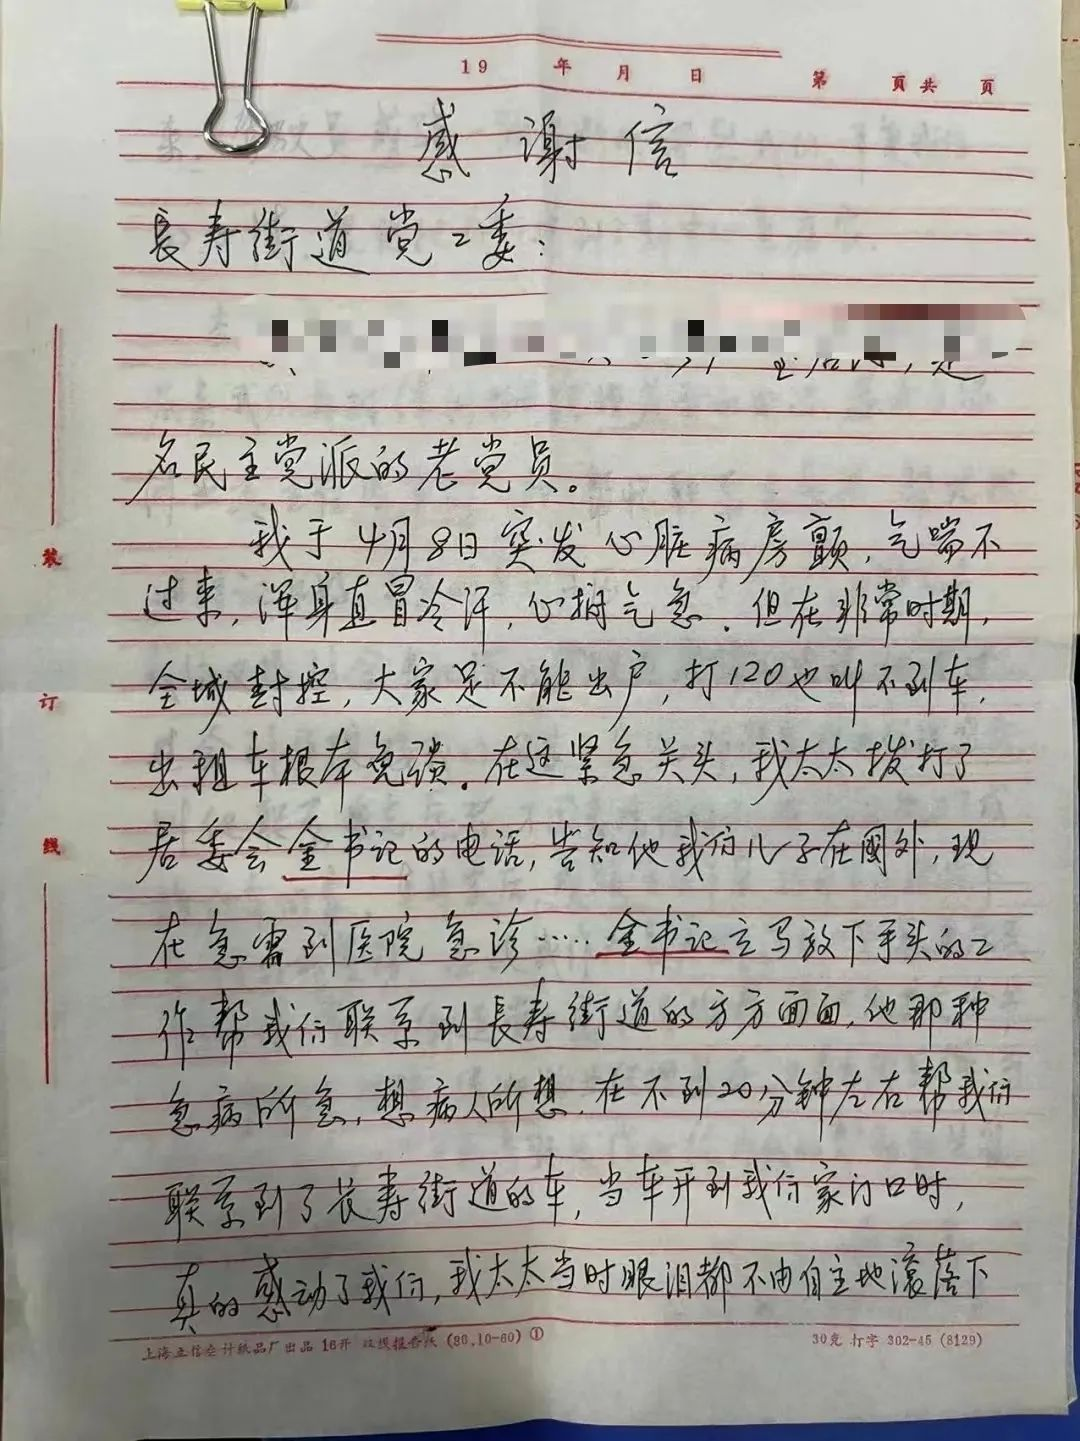 19 年 月 日 第 頁共 页
感謝信
長寿街道党工委：
是
名民主党派的老党员。
我于4月8日突发心脏病房颤，气喘不
过来，浑身直冒冷汗，心捎气急．但在非常时期，
全城封控，大家足不能出户，打120也叫不到车，
出租车根本免谈．在这紧急关头，我太太拨打了
居委会金书记的电话，告知他我们儿子在國外，现
在急需到医院急诊……金书记立马放下手头的工
作帮我们联系到長寿街道的方方面面，他那种
急病所急，想病人所想．在不到20分钟左右帮我们
联系到了长寿街道的车，当车开到我们家门口时，
真的感动了我们，我太太当时眼泪都不由自主地滚落下
装
订
线
上海立信会计纸品厂出品 16开 双线报告纸 (80.10-60) ①
30克 打字 302-45 (8129)